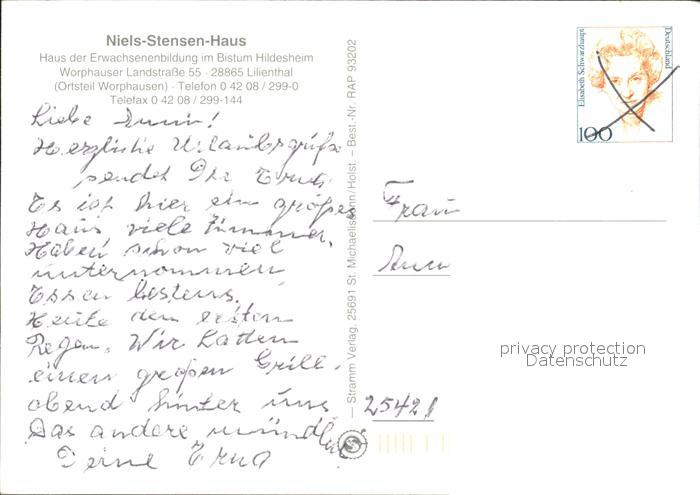 Niels-Stensen-Haus
Haus der Erwachsenenbildung im Bistum Hildesheim
Worphauser Landstraße 55 · 28865 Lilienthal
(Ortsteil Worphausen) · Telefon 0 42 08 / 299-0
Telefax 0 42 08 / 299-144
Liebe
Herzliche Urlaubsgrüße
sendet Dir Erna
Es ist hier ein großes
Haus viele Zimmer,
Haben schon viel
unternommen
Essen bestens.
Heute den ersten
Regen. Wir hatten
einen großen Grill-
abend hinter uns
Das andere mündlich
Deine Erna
— Stramm Verlag, 25691 St. Michaelisdonn/Holst. – Best.-Nr. RAP 93202
Elisabeth Schwarzhaupt
Deutschland
100
Frau
25421
privacy protection
Datenschutz